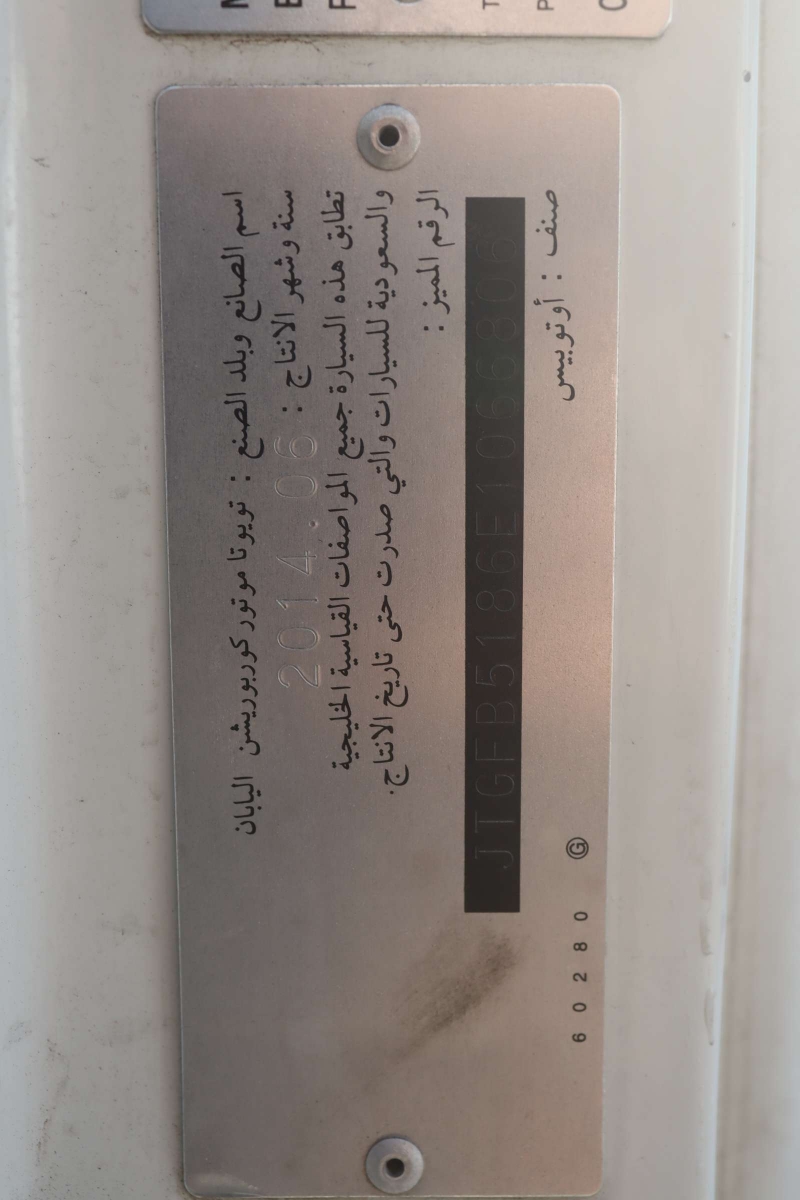 اسم الصانع وبلد الصنع : تويوتا موتور كوربوريشن اليابان
سنة وشهر الانتاج : 2014.06
تطابق هذه السيارة جميع المواصفات القياسية الخليجية
والسعودية للسيارات والتي صدرت حتى تاريخ الانتاج.
الرقم المميز :
JTGFB5186E1066806
صنف : أوتوبيس
60280 Ⓖ